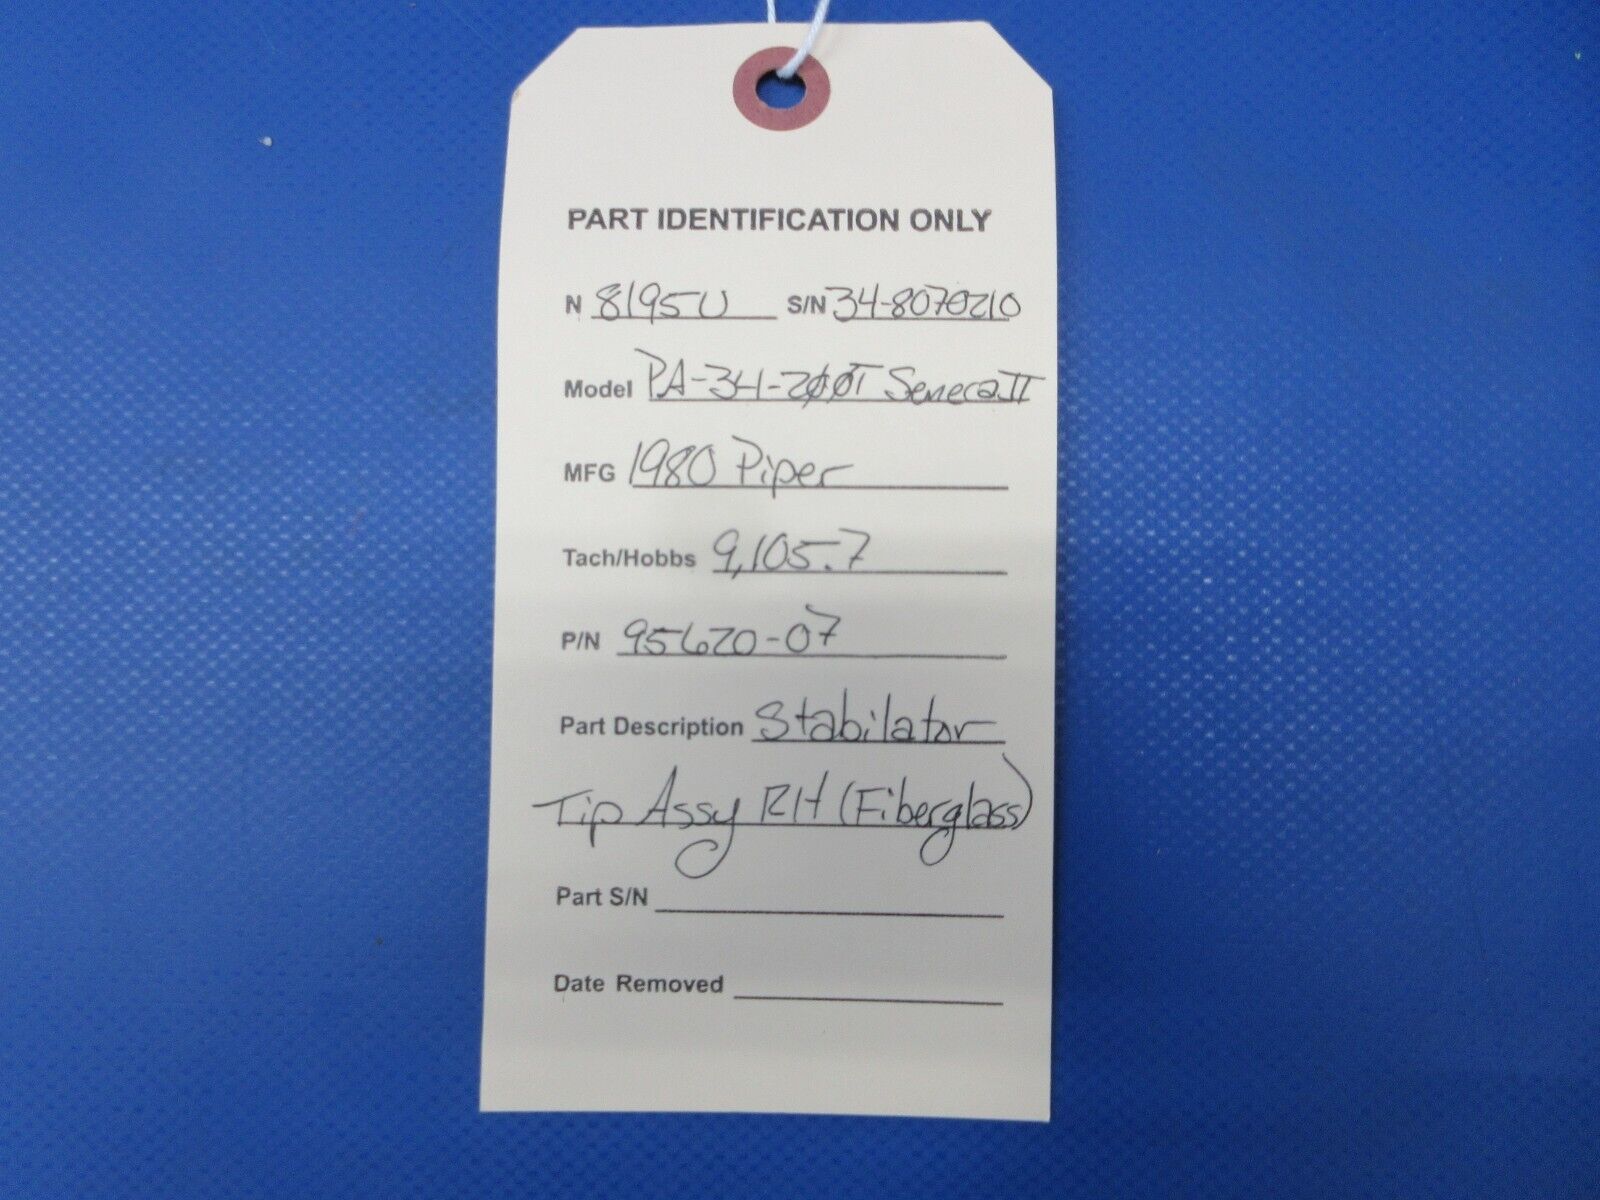 PART IDENTIFICATION ONLY
N 8195U S/N 34-8070210
Model PA-34-200T Seneca II
MFG 1980 Piper
Tach/Hobbs 9,105.7
P/N 95620-07
Part Description Stabilator
Tip Assy RH (Fiberglass)
Part S/N
Date Removed